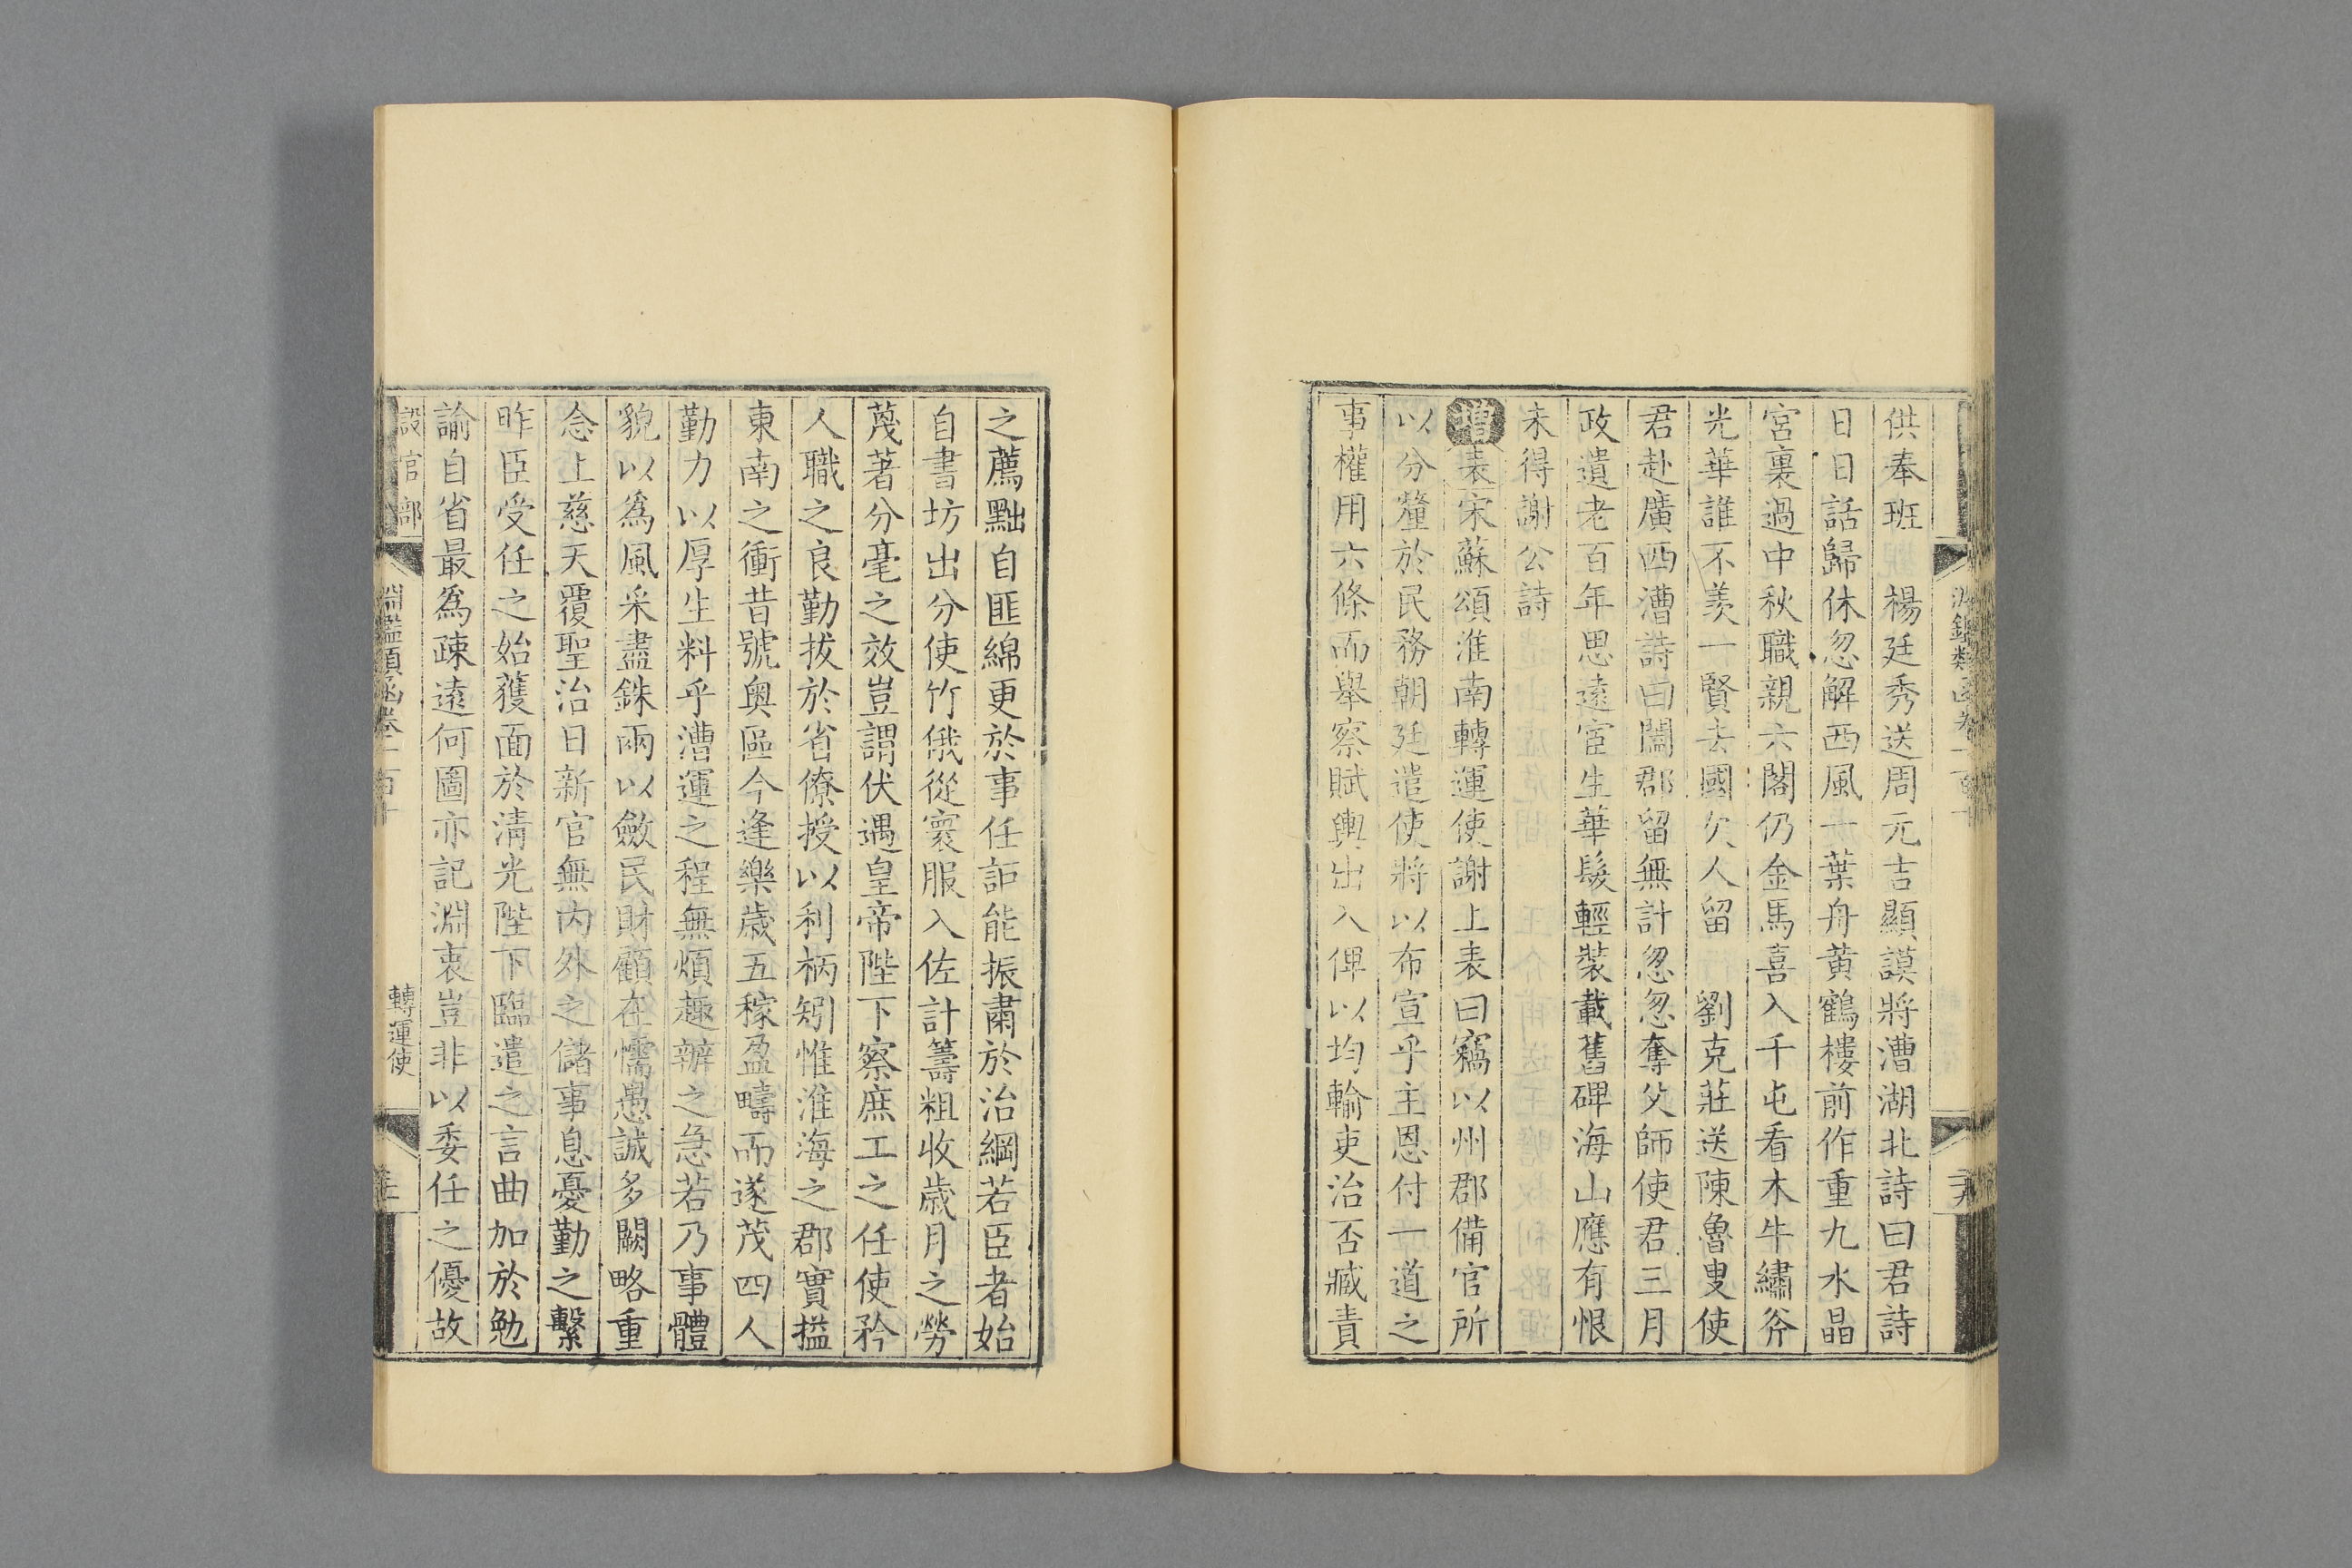 供奉班　楊廷秀送周元吉顯謨將漕湖北詩曰君詩
日日話歸休忽解西風一葉舟黃鶴樓前作重九水晶
宮裏過中秋職親六閣仍金馬喜入千屯看木牛繡斧
光華誰不羨一賢去國欠人留　劉克莊送陳魯叟使
君赴廣西漕詩曰闔郡留無計忽忽奪父師使君三月
政遺老百年思遠宦生華髮輕裝載舊碑海山應有恨
未得謝公詩
增表宋蘇頌淮南轉運使謝上表曰竊以州郡備官所
以分釐於民務朝廷遣使將以布宣乎主恩付一道之
事權用六條而舉察賦輿出入俾以均輸吏治否臧責
之薦黜自匪綿更於事任詎能振肅於治綱若臣者始
自書坊出分使竹俄從寰服入佐計籌粗收歲月之勞
蔑著分毫之效豈謂伏遇皇帝陛下察庶工之任使矜
人職之良勤拔於省僚授以利柄矧惟淮海之郡實搤
東南之衝昔號奧區今逢樂歲五稼盈疇而遂茂四人
勤力以厚生料乎漕運之程無煩趣辦之急若乃事體
貌以爲風采盡銖兩以斂民財顧在懦愚誠多闕略重
念上慈天覆聖治日新官無内外之儲事息憂勤之繫
昨臣受任之始獲面於清光陛下臨遣之言曲加於勉
諭自省最爲疎遠何圖亦記淵衷豈非以委任之優故
設官部
淵鑑類函卷一百十
轉運使